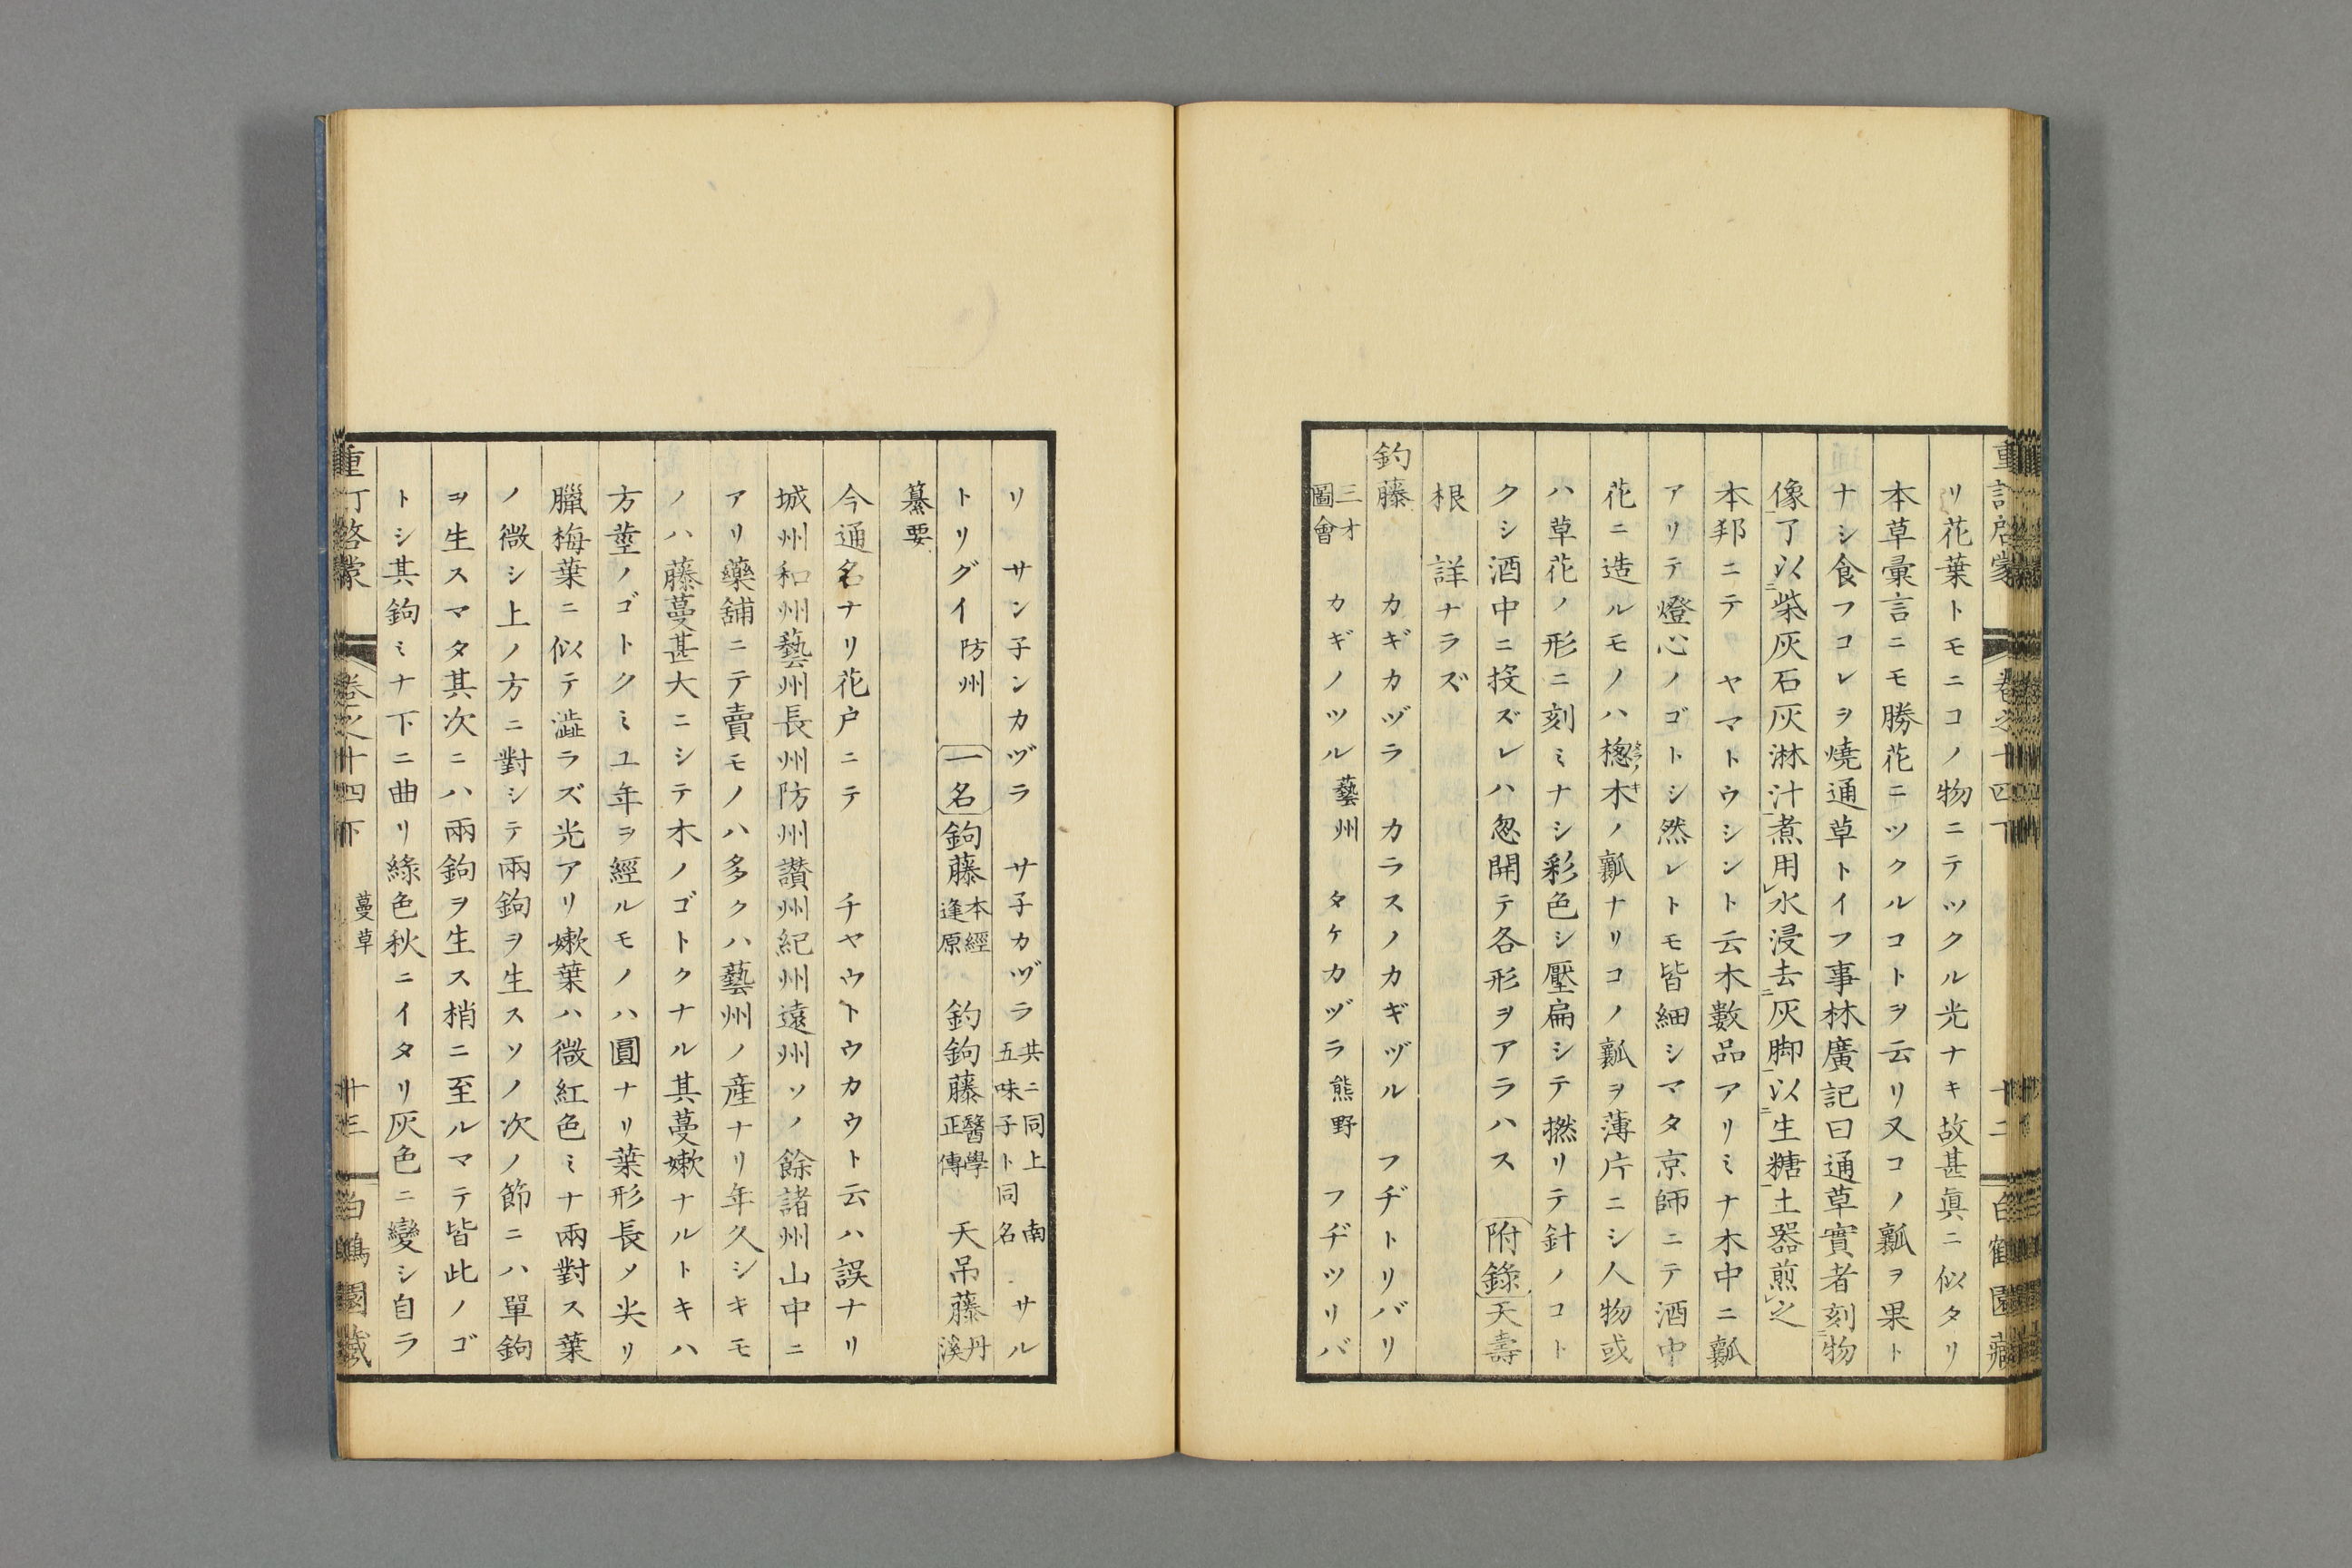 重訂啓蒙 卷之十四下 十二 白鶴園藏
リ花葉トモニコノ物ニテツクル光ナキ故甚眞ニ似タリ
本草彙言ニモ勝花ニツクルコトヲ云リ又コノ瓤ヲ果ト
ナシ食フコレヲ燒通草トイフ事林廣記曰通草實者刻物
像了以柴灰石灰淋汁煮用水浸去灰脚以生糖土器煎之
本邦ニテヤマトウシント云木數品アリミナ木中ニ瓤
アリテ燈心ノゴトシ然レトモ皆細シマタ京師ニテ酒中
花ニ造ルモノハ楤木ノ瓤ナリコノ瓤ヲ薄片ニシ人物或
ハ草花ノ形ニ刻ミナシ彩色シ壓扁シテ撚リテ針ノコト
クシ酒中ニ投ズレハ忽開テ各形ヲアラハス 附錄 天壽
根 詳ナラズ
釣藤 カギカヅラ カラスノカギヅル フヂトリバリ
三才圖會 カギノツル 藝州 タケカヅラ 熊野 フヂツリバ
リ サン子ンカヅラ サ子カヅラ 共ニ同上南五味子ト同名 サル
トリグイ 防州 一名 鉤藤 本經逢原 釣鉤藤 醫學正傳 天吊藤 丹溪
纂要
今通名ナリ花戸ニテ チヤウトウカウト云ハ誤ナリ
城州和州藝州長州防州讃州紀州遠州ソノ餘諸州山中ニ
アリ藥舖ニテ賣モノハ多クハ藝州ノ産ナリ年久シキモ
ノハ藤蔓甚大ニシテ木ノゴトクナル其蔓嫩ナルトキハ
方莖ノゴトクミユ年ヲ經ルモノハ圓ナリ葉形長メ尖リ
臘梅葉ニ似テ澁ラズ光アリ嫩葉ハ微紅色ミナ兩對ス葉
ノ微シ上ノ方ニ對シテ兩鉤ヲ生スソノ次ノ節ニハ單鉤
ヲ生スマタ其次ニハ兩鉤ヲ生ス梢ニ至ルマテ皆此ノゴ
トシ其鉤ミナ下ニ曲リ綠色秋ニイタリ灰色ニ變シ自ラ
重訂啓蒙 卷之十四下 蔓草 十三 白鶴園藏